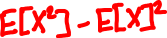 E[X²] - E[X]²